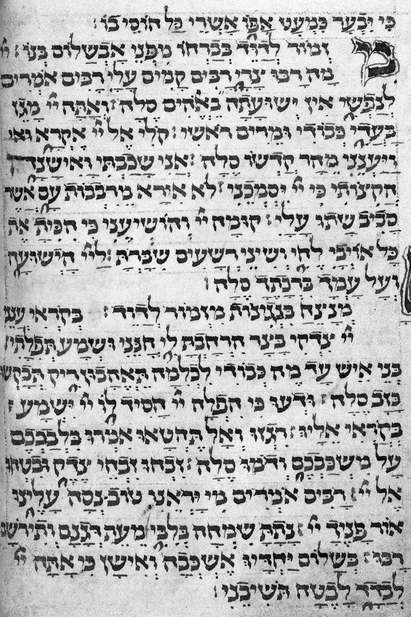 כי יבער כמעט אפו אשרי כל חוסי בו׃
מזמור לדוד בברחו מפני אבשלום בנו׃ יי
מה רבו צרי רבים קמים עלי׃ רבים אמרים
לנפשי אין ישועתה באלהים סלה׃ ואתה יי מגן
בעדי כבודי ומרים ראשי׃ קלי אל יי אקרא
ויענני מהר קדשו סלה׃ אני שכבתי ואישנה
הקצותי כי יי יסמכני׃ לא אירא מרבבות עם אשר
סביב שתו עלי׃ קומה יי והושיעני כי הכית את
כל אויבי לחי ושיני רשעים שברת׃ ליי הישועה
ועל עמך ברכתך סלה׃
מנצח בנגינות מזמור לדוד׃ בקראי ענני
יי צדקי בצר הרחבת לי חנני ושמע תפלתי
בני איש עד מה כבודי לכלמה תאהבון ריק תבקשו
כזב סלה׃ ודעו כי הפלה יי חסיד לו יי ישמע׃
בקראי אליו׃ רגזו ואל תחטאו אמרו בלבבכם
על משכבכם ודמו סלה׃ זבחו זבחי צדק ובטחו
אל יי׃ רבים אמרים מי יראנו טוב נסה עלינו
אור פניך יי׃ נתת שמחה בלבי מעת דגנם ותירשם
רבו׃ בשלום יחדיו אשכבה ואישן כי אתה יי
לבדד לבטח תשיבני׃